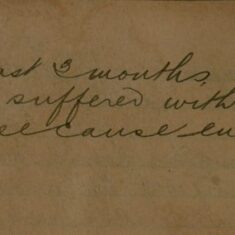 ast 3 months,
suffered with
cause